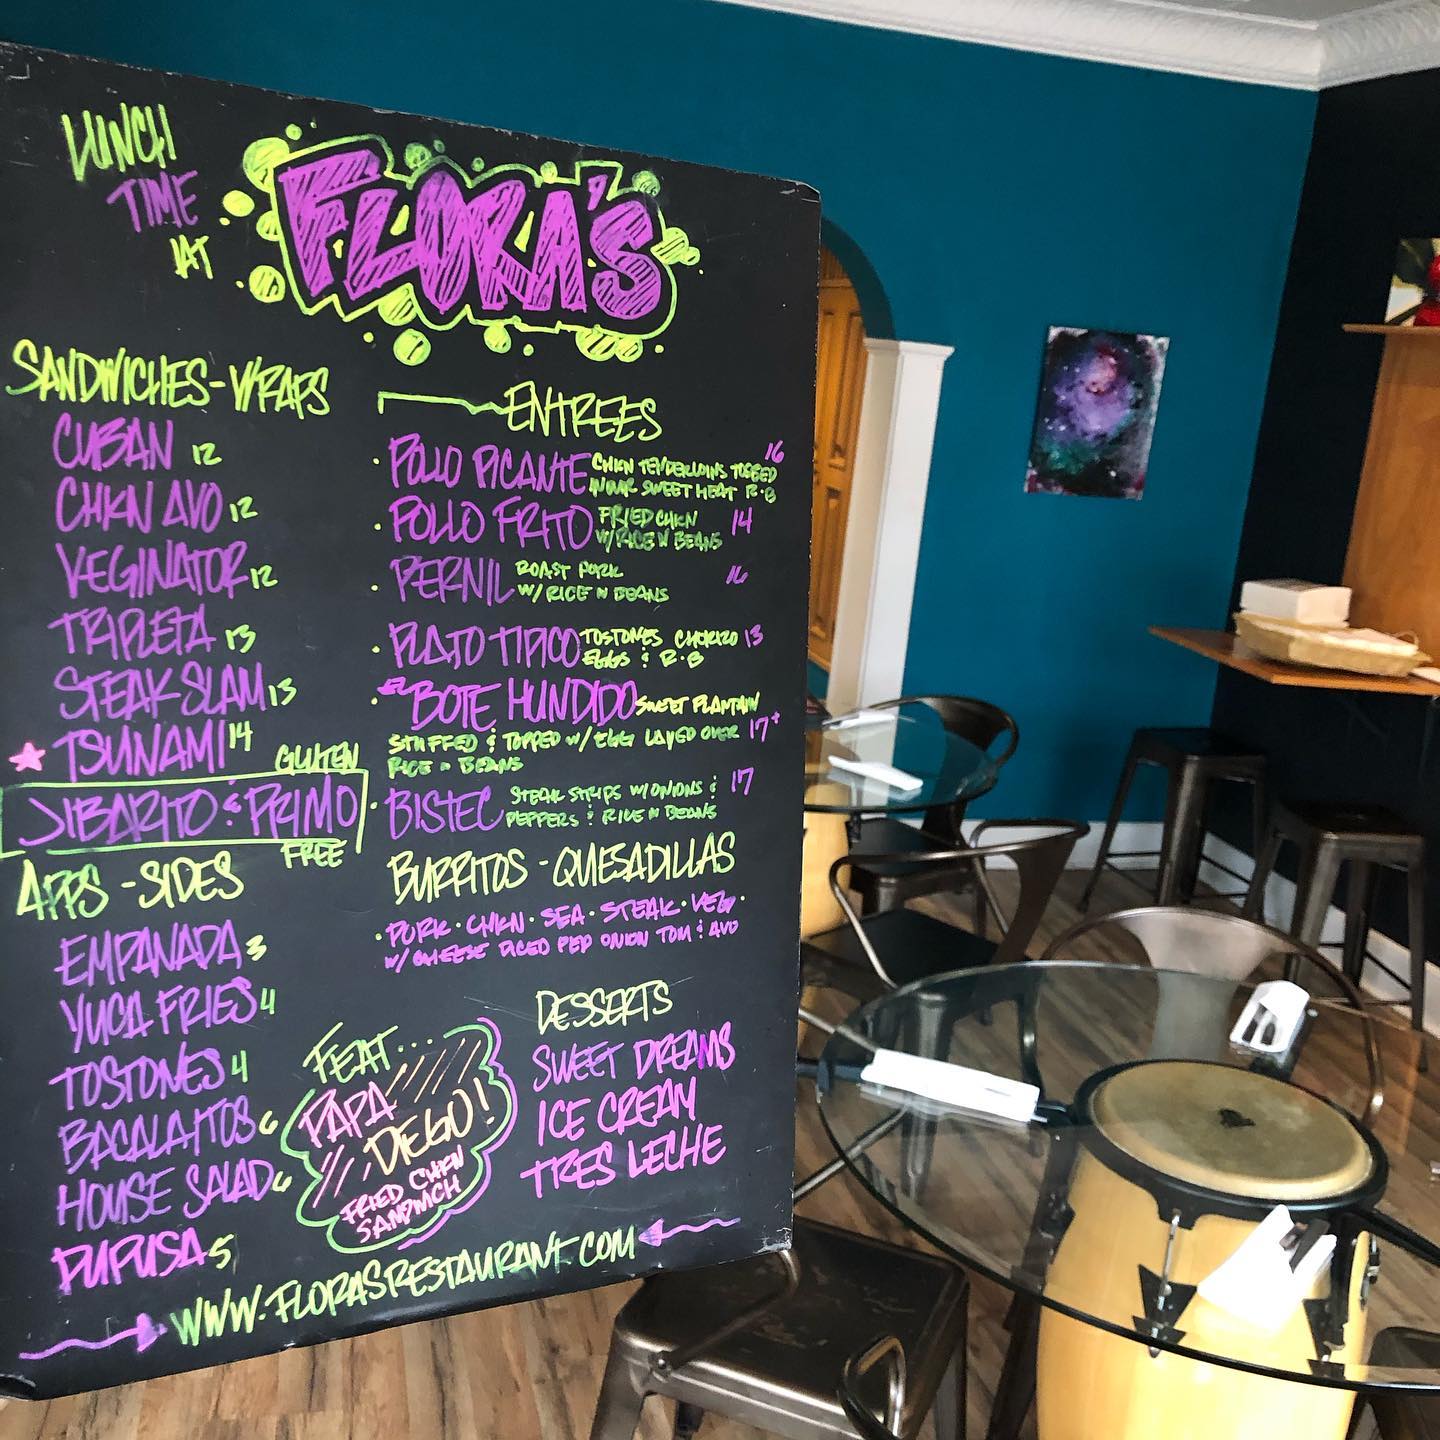 LUNCH
TIME
AT
FLORA'S
SANDWICHES-WRAPS
CUBAN 12
CHKN AVO 12
VEGINATOR 12
TRIPLETA 13
STEAK SLAM 13
TSUNAMI 14
GLUTEN
JIBARITO & PRIMO
FREE
APPS-SIDES
EMPANADA 3
YUCA FRIES 4
TOSTONES 4
BACALAITOS 6
HOUSE SALAD 6
PUPUSA 5
ENTREES
• POLLO PICANTE CHKN TENDERLOINS TOSSED 16
IN OUR SWEET HEAT R•B
• POLLO FRITO FRIED CHKN 14
W/RICE N BEANS
• PERNIL ROAST PORK 16
W/RICE N BEANS
• PLATO TIPICO TOSTONES CHORIZO 13
EGGS & R•B
• EL BOTE HUNDIDO SWEET PLANTAIN
STUFFED & TOPPED W/ EGG LAYED OVER 17+
RICE N BEANS
• BISTEC STEAK STRIPS W/ONIONS & 17
PEPPERS & RICE N BEANS
BURRITOS - QUESADILLAS
• PORK • CHKN • SEA • STEAK • VEG •
W/ CHEESE DICED RED ONION TOM & AVO
FEAT...
PAPA
DIEGO!
FRIED CHKN
SANDWICH
DESSERTS
SWEET DREAMS
ICE CREAM
TRES LECHE
WWW.FLORASRESTAURANT.COM